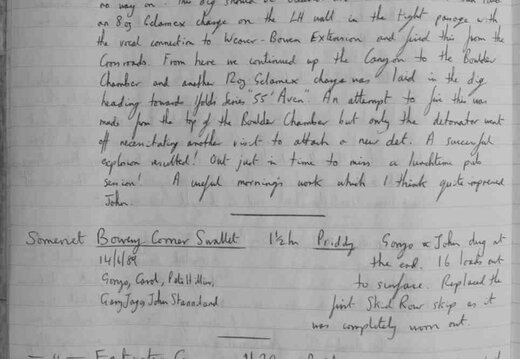 no way on. This dig should be
an 8oz Gelamex charge on the LH wall in the tight passage with
the vocal connection to Weaver-Bowen Extension and fired this from the
Crossroads. From here we continued up the Canyon to the Boulder
Chamber and another 12oz Gelamex charge was laid in the dig
heading towards Yolds Series "55' Aven". An attempt to fire this was
made from the top of the Boulder Chamber but only the detonator went
off necessitating another visit to attach a new det. A successful
explosion resulted! Out just in time to miss a lunchtime pub
session! A useful morning's work which I think quite impressed
John.
Somerset Bowery Corner Swallet 1½hr Priddy Gonzo & John dug at
14/6/89 the end. 16 loads out
Gonzo, Carol, Pete Hillier, to surface. Replaced the
Gary Jago, John Stannard first Skid Row skip as it
was completely worn out.